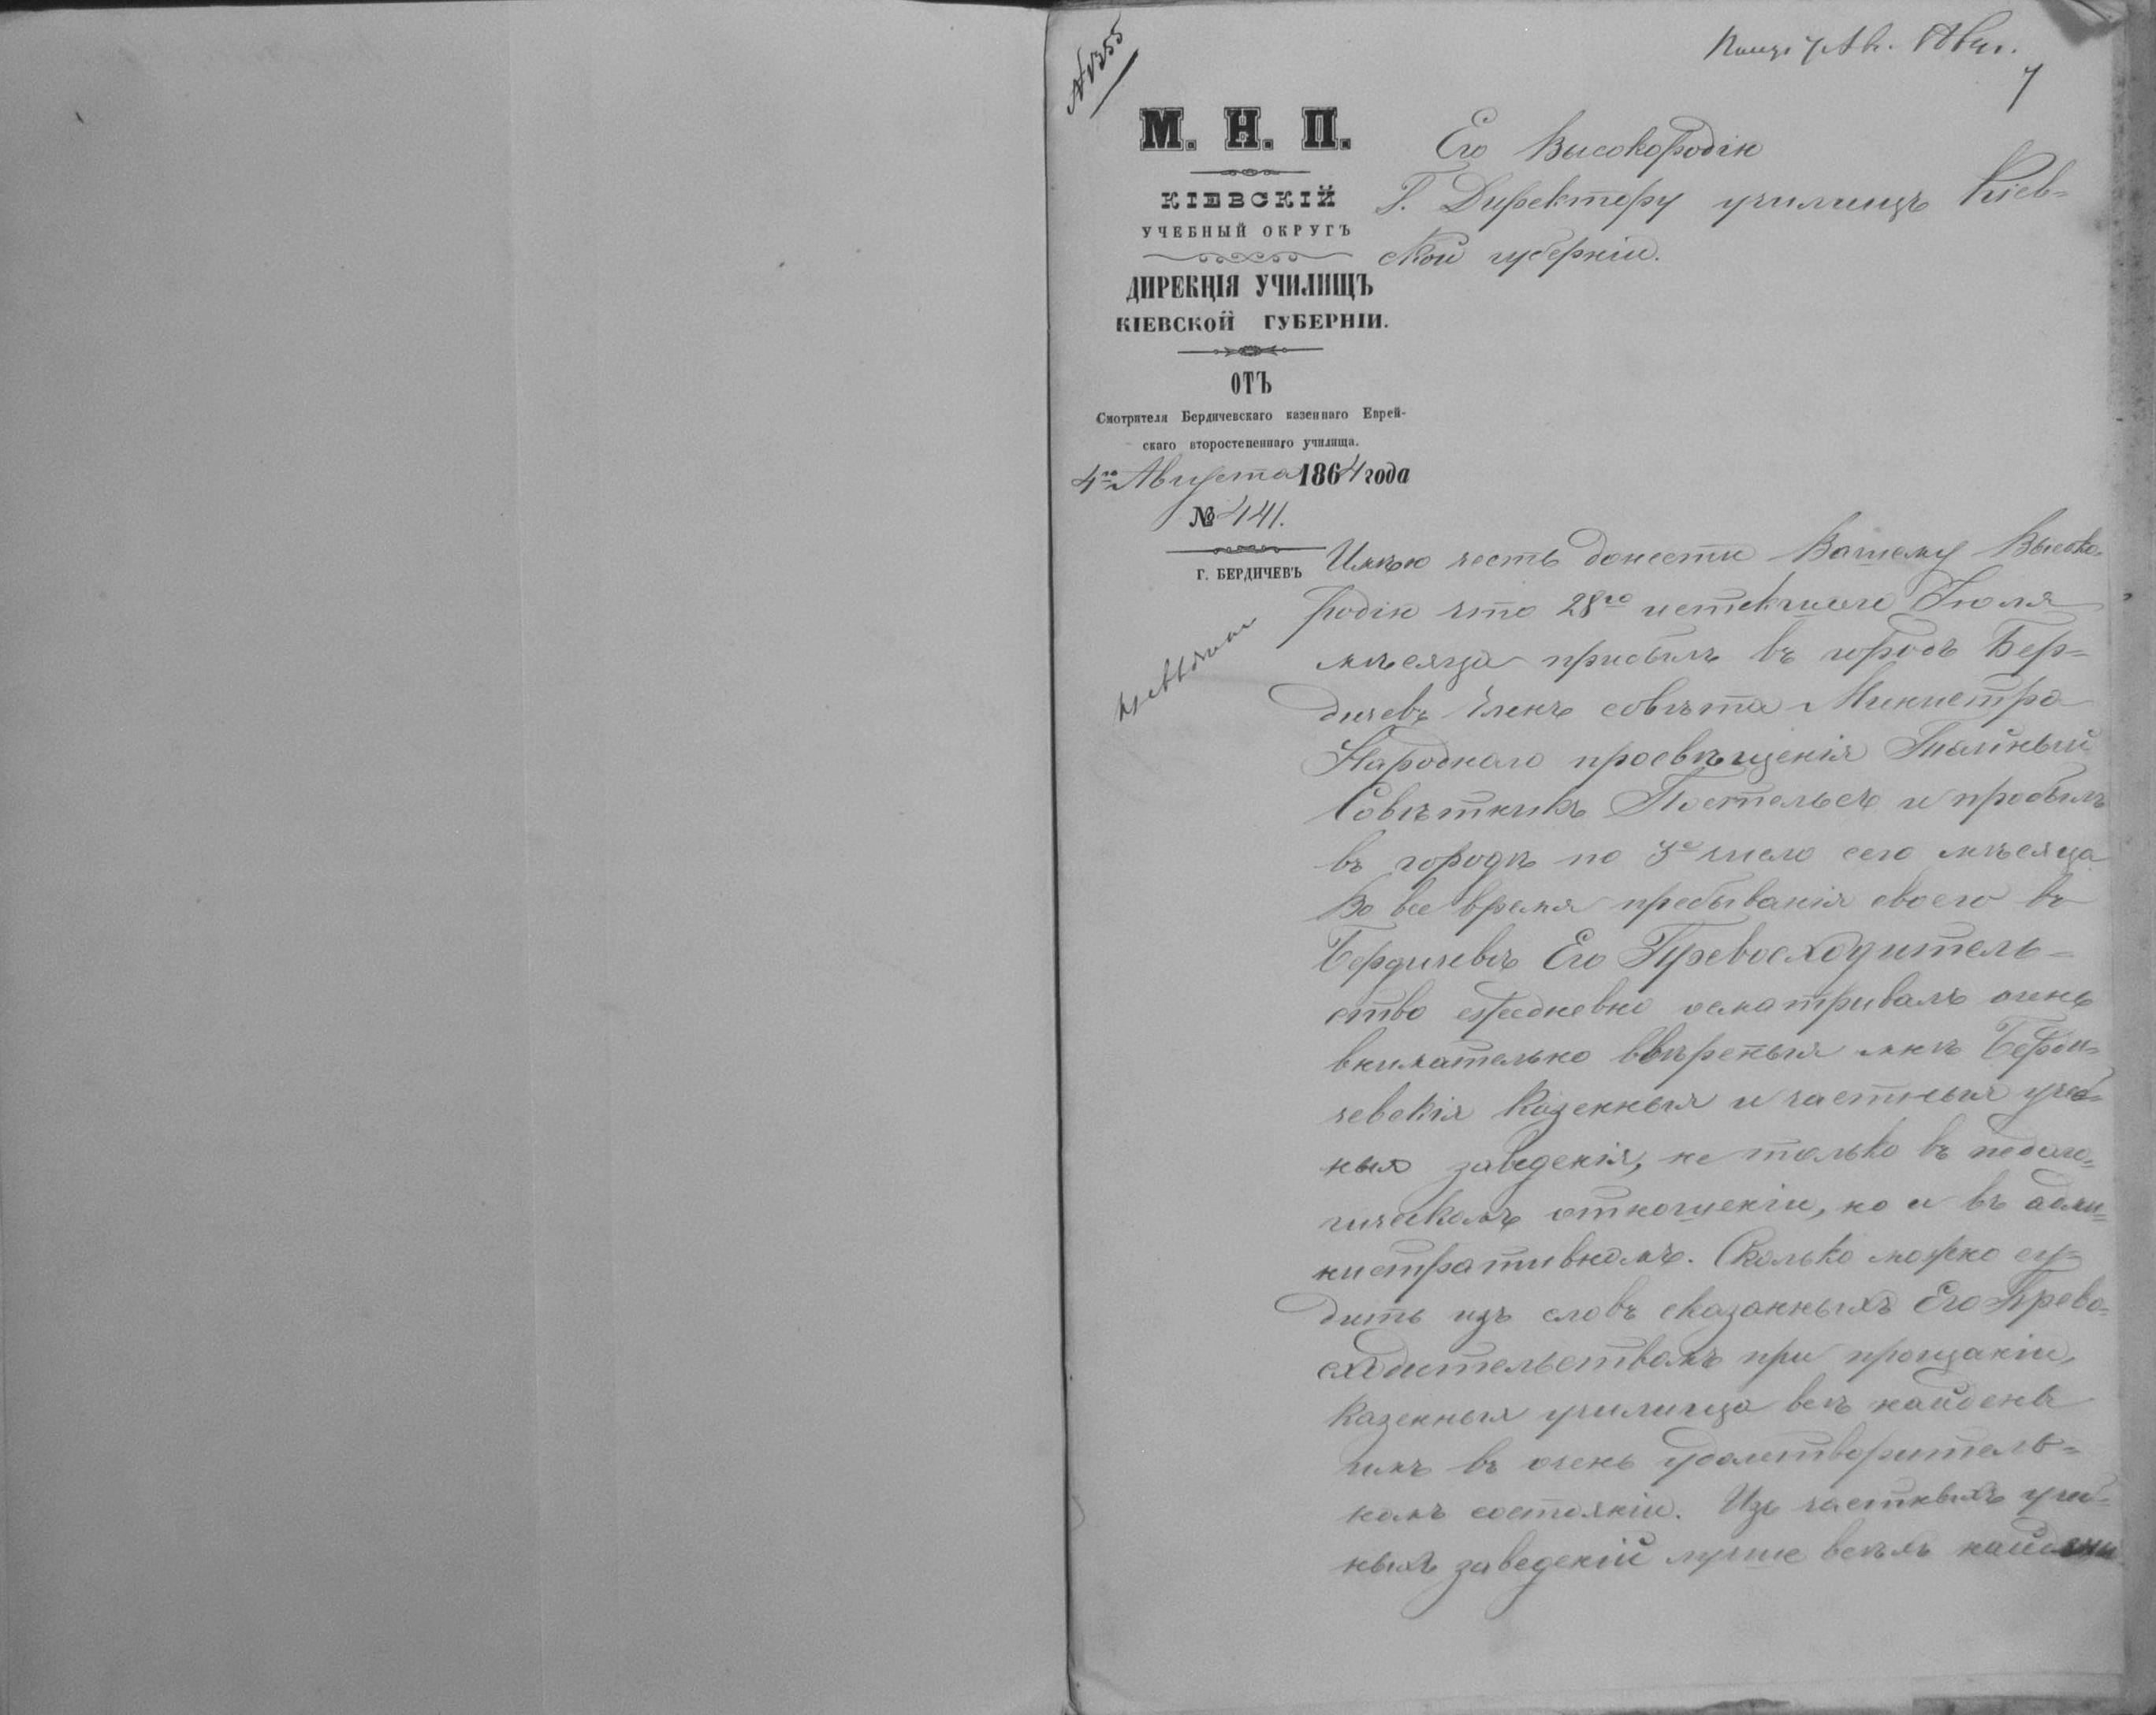 № 1355
7
М. Н. П.
КІЕВСКІЙ
УЧЕБНЫЙ ОКРУГЪ
ДИРЕКЦІЯ УЧИЛИЩЪ
КІЕВСКОЙ ГУБЕРНІИ.
ОТЪ
Смотрителя Бердичевскаго казеннаго Еврей-
скаго второстепеннаго училища.
4го Августа 1864 года
№ 441.
Г. БЕРДИЧЕВЪ
Его Высокородію
Г. Директору училищъ Кіев=
ской губерніи.
Имѣю честь донести Вашему Высоко-
родію что 28го истекшаго Іюля
мѣсяца прибылъ въ городъ Бер=
дичевъ Членъ совѣта Министра
Народнаго просвѣщенія Тайный
Совѣтникъ Постельсъ и пробылъ
въ городѣ по 3е число сего мѣсяца
Во все время пребыванія своего въ
Бердичевѣ Его Превосходитель=
ство ежедневно осматривалъ очень
внимательно ввѣреныя мнѣ Берди=
чевскія Казенныя и частныя учеб=
ныя заведенія, не только въ педаго=
гическомъ отношеніи, но и въ адми=
нистративномъ. Сколько можно су=
дить изъ словъ сказанныхъ Его Прево=
сходительствомъ при прощаніи,
Казенныя училища всѣ найдены
имъ въ очень удовлетворитель=
номъ состояніи. Изъ частныхъ учеб=
ныхъ заведеній лучше всѣхъ найдены